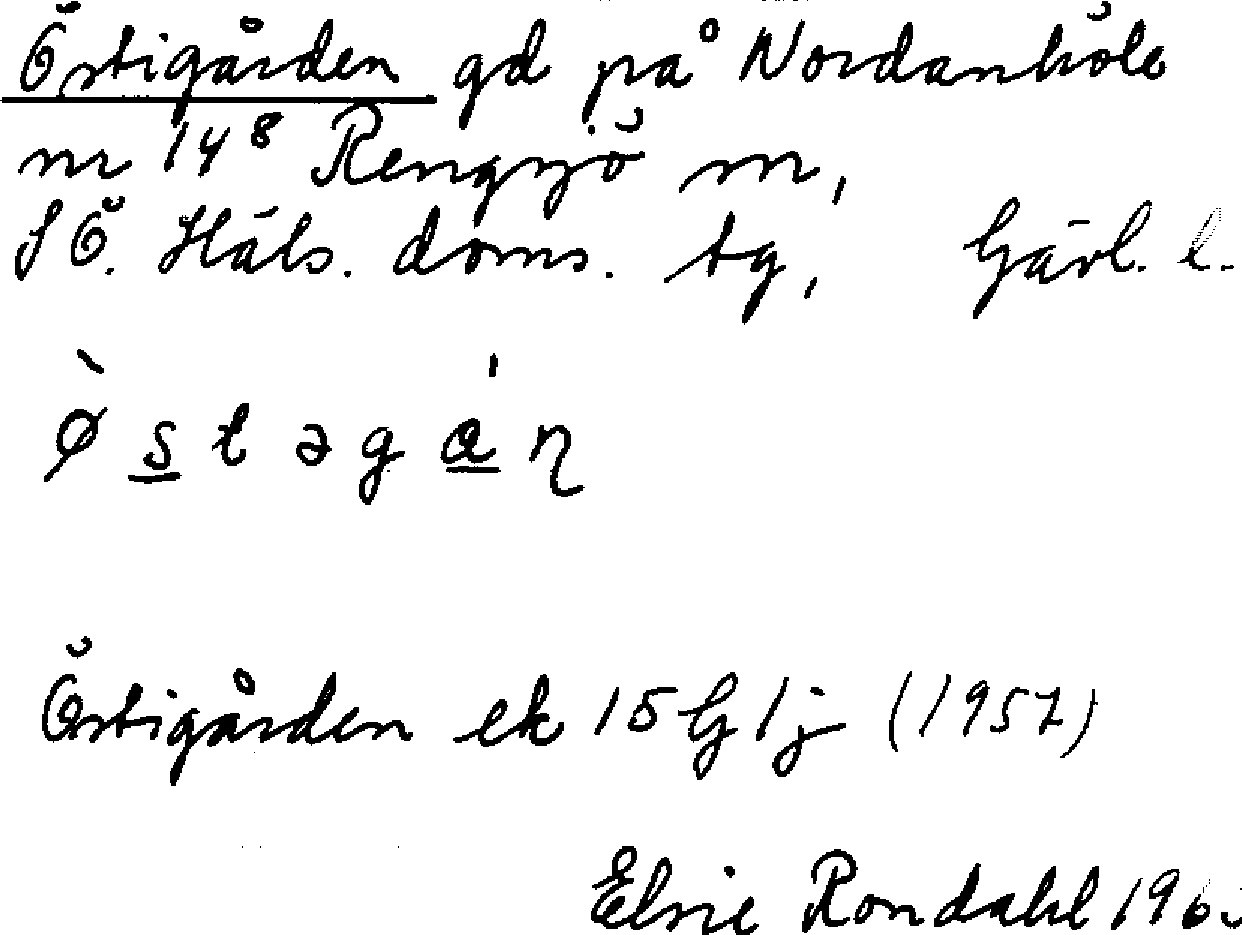 Östigården gd på Nordanhöle
nr 14⁸ Rengsjö sn,
SÖ. Häls. doms. tg, Gävl. l.
ø̀ s t ə g á ɳ
Östigården ek 15 G 1j (1957)
Elsie Rondahl